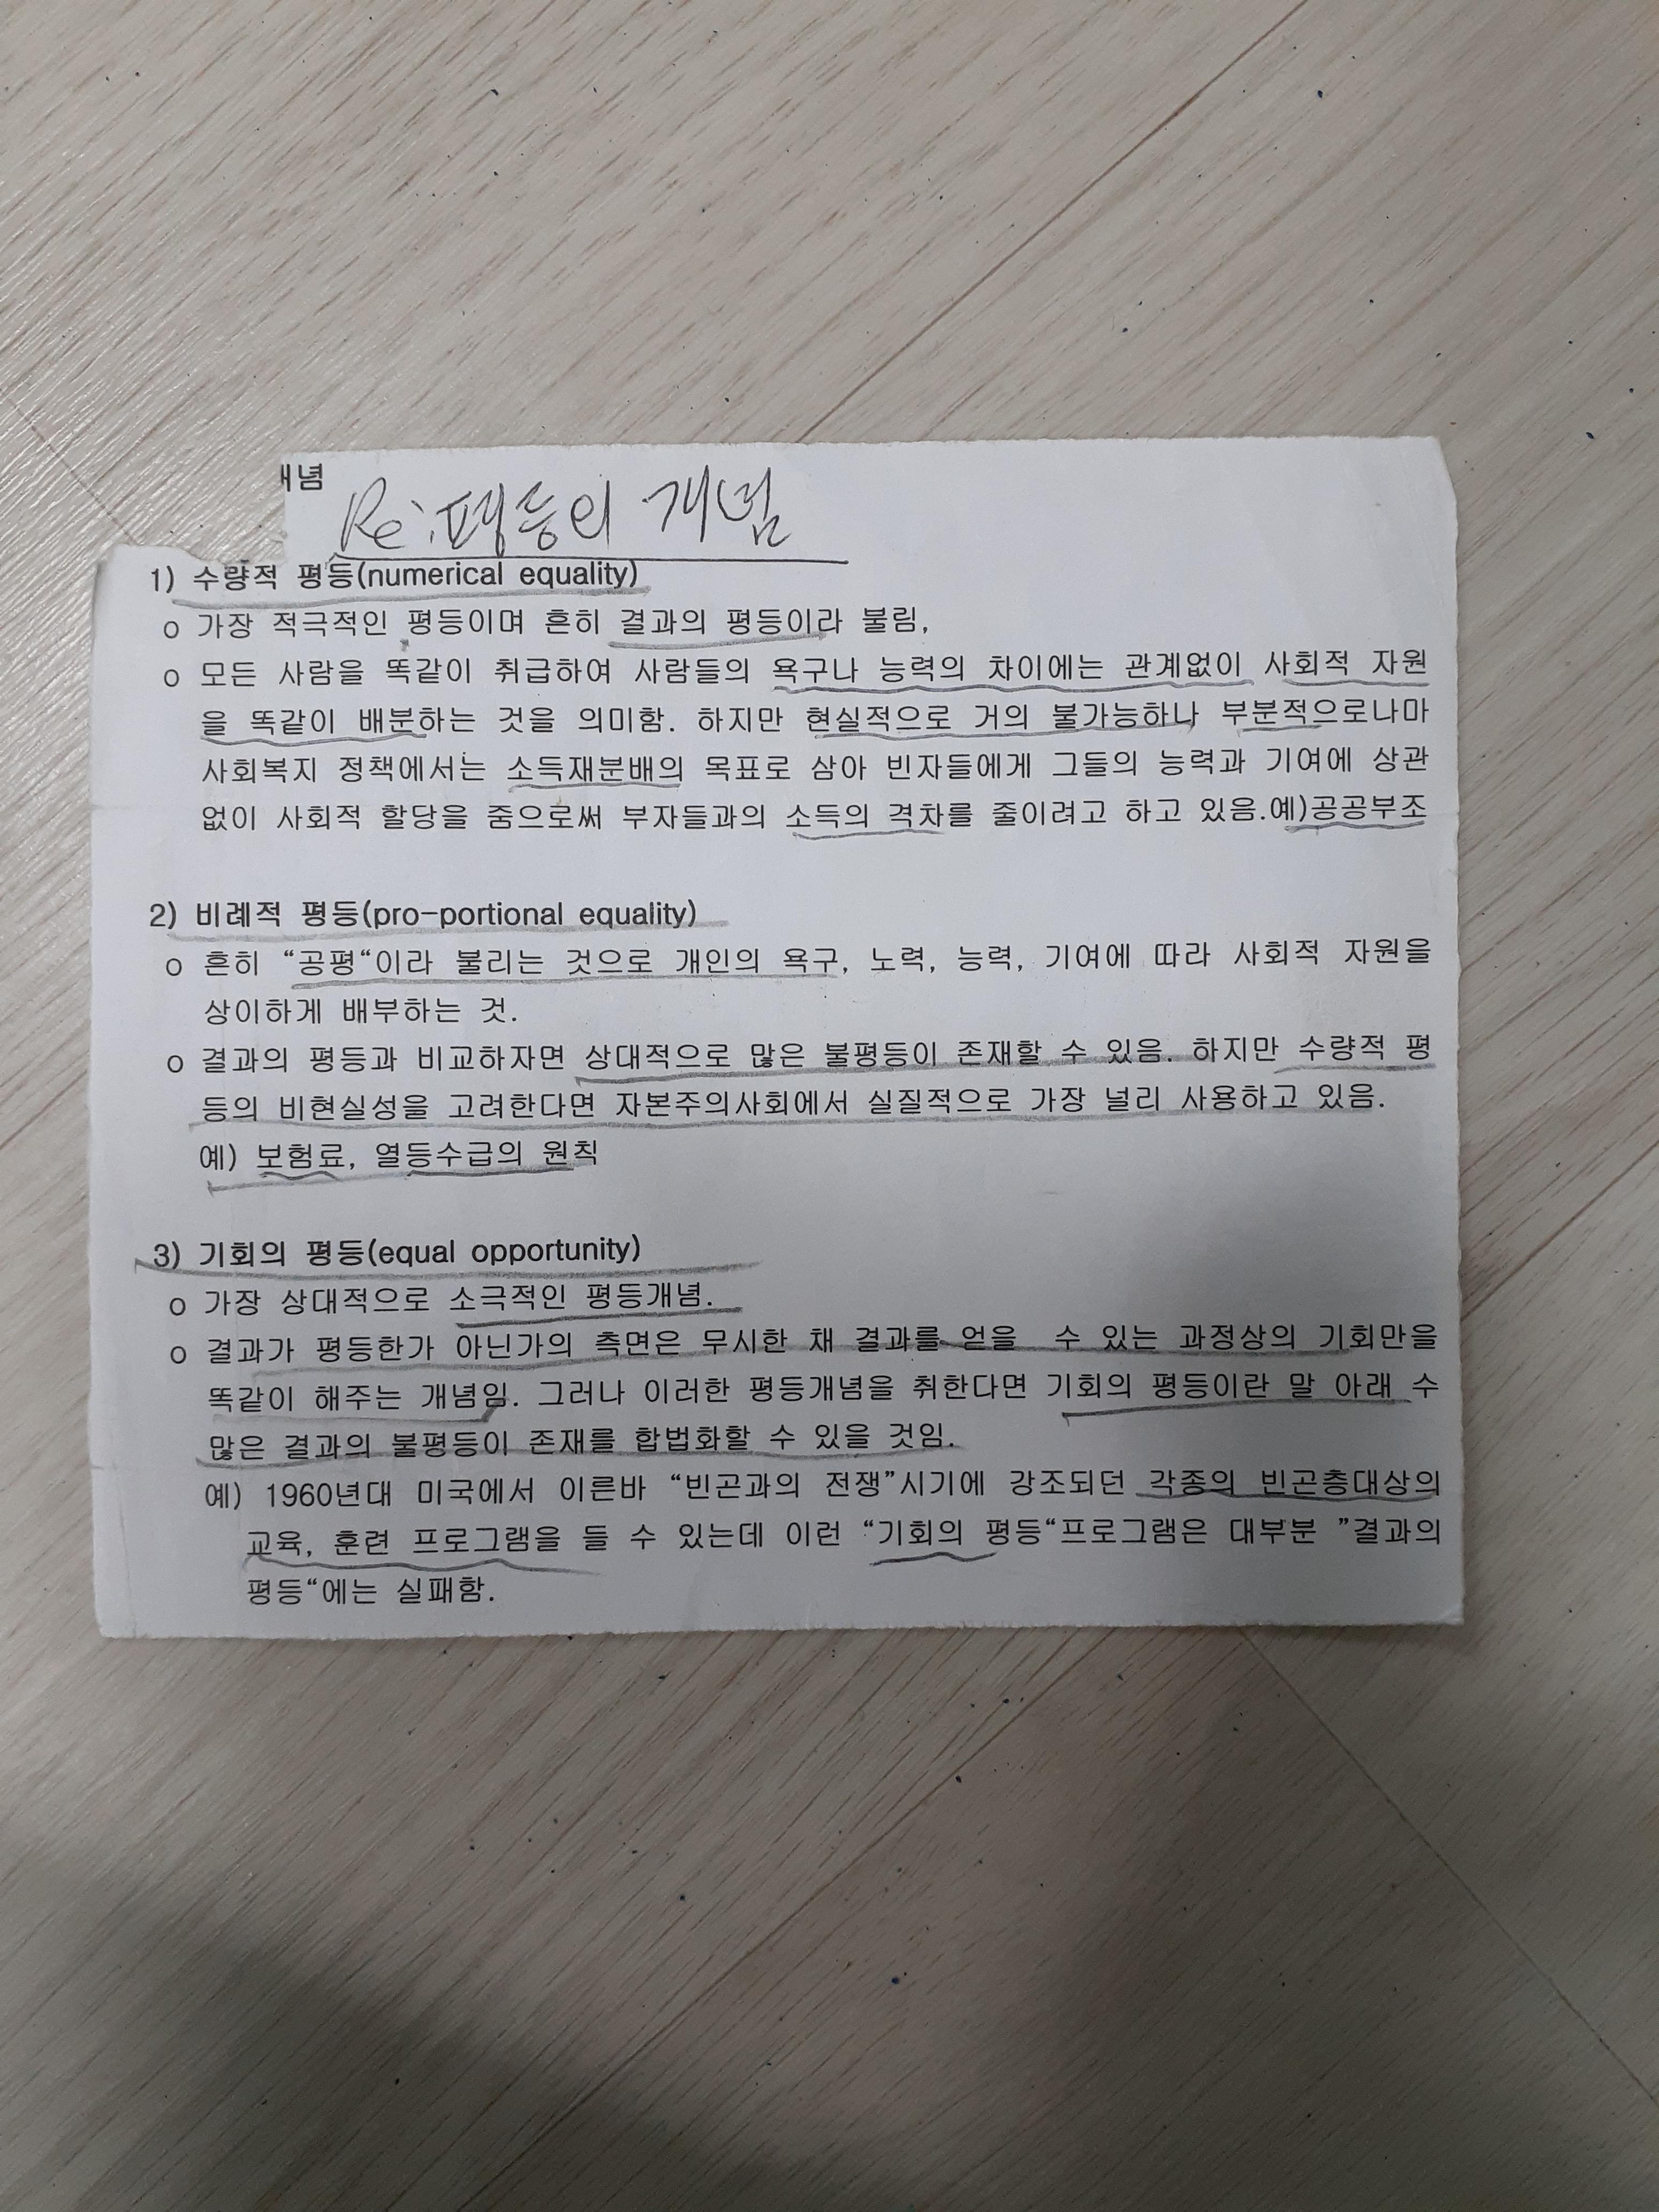 념
Re: 평등의 개념
1) 수량적 평등(numerical equality)
o 가장 적극적인 평등이며 흔히 결과의 평등이라 불림,
o 모든 사람을 똑같이 취급하여 사람들의 욕구나 능력의 차이에는 관계없이 사회적 자원
을 똑같이 배분하는 것을 의미함. 하지만 현실적으로 거의 불가능하나 부분적으로나마
사회복지 정책에서는 소득재분배의 목표로 삼아 빈자들에게 그들의 능력과 기여에 상관
없이 사회적 할당을 줌으로써 부자들과의 소득의 격차를 줄이려고 하고 있음.예)공공부조
2) 비례적 평등(pro-portional equality)
o 흔히 “공평“이라 불리는 것으로 개인의 욕구, 노력, 능력, 기여에 따라 사회적 자원을
상이하게 배부하는 것.
o 결과의 평등과 비교하자면 상대적으로 많은 불평등이 존재할 수 있음. 하지만 수량적 평
등의 비현실성을 고려한다면 자본주의사회에서 실질적으로 가장 널리 사용하고 있음.
예) 보험료, 열등수급의 원칙
3) 기회의 평등(equal opportunity)
o 가장 상대적으로 소극적인 평등개념.
o 결과가 평등한가 아닌가의 측면은 무시한 채 결과를 얻을 수 있는 과정상의 기회만을
똑같이 해주는 개념임. 그러나 이러한 평등개념을 취한다면 기회의 평등이란 말 아래 수
많은 결과의 불평등이 존재를 합법화할 수 있을 것임.
예) 1960년대 미국에서 이른바 “빈곤과의 전쟁”시기에 강조되던 각종의 빈곤층대상의
교육, 훈련 프로그램을 들 수 있는데 이런 “기회의 평등“프로그램은 대부분 ”결과의
평등“에는 실패함.